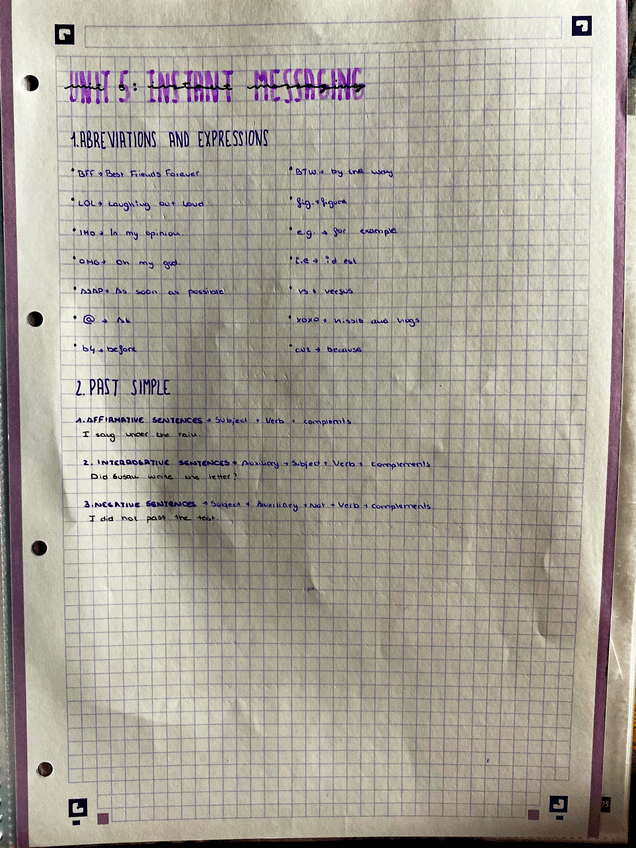 UNIT 5: INSTANT MESSAGING
1. ABREVIATIONS AND EXPRESSIONS
• BFF → Best Friends Forever
• LOL → Laughing out loud
• IMO → In my opinion.
• OMG → Oh my god.
• ASAP → As soon as possible
• @ → At
• b4 → before
• BTW → by the way
• fig. → figure
• e.g. → for example
• i.e → id est
• vs → versus
• xoxo → kisses and hugs
• cuz → because
2. PAST SIMPLE
1. AFFIRMATIVE SENTENCES → Subject + Verb + complemts
I sang under the rain.
2. INTERROGATIVE SENTENCES → Auxiliary + Subject + Verb + complements
Did Susan write the letter?
3. NEGATIVE SENTENCES → Subject + Auxiliary + Not + Verb + complements
I did not pass the test.
75